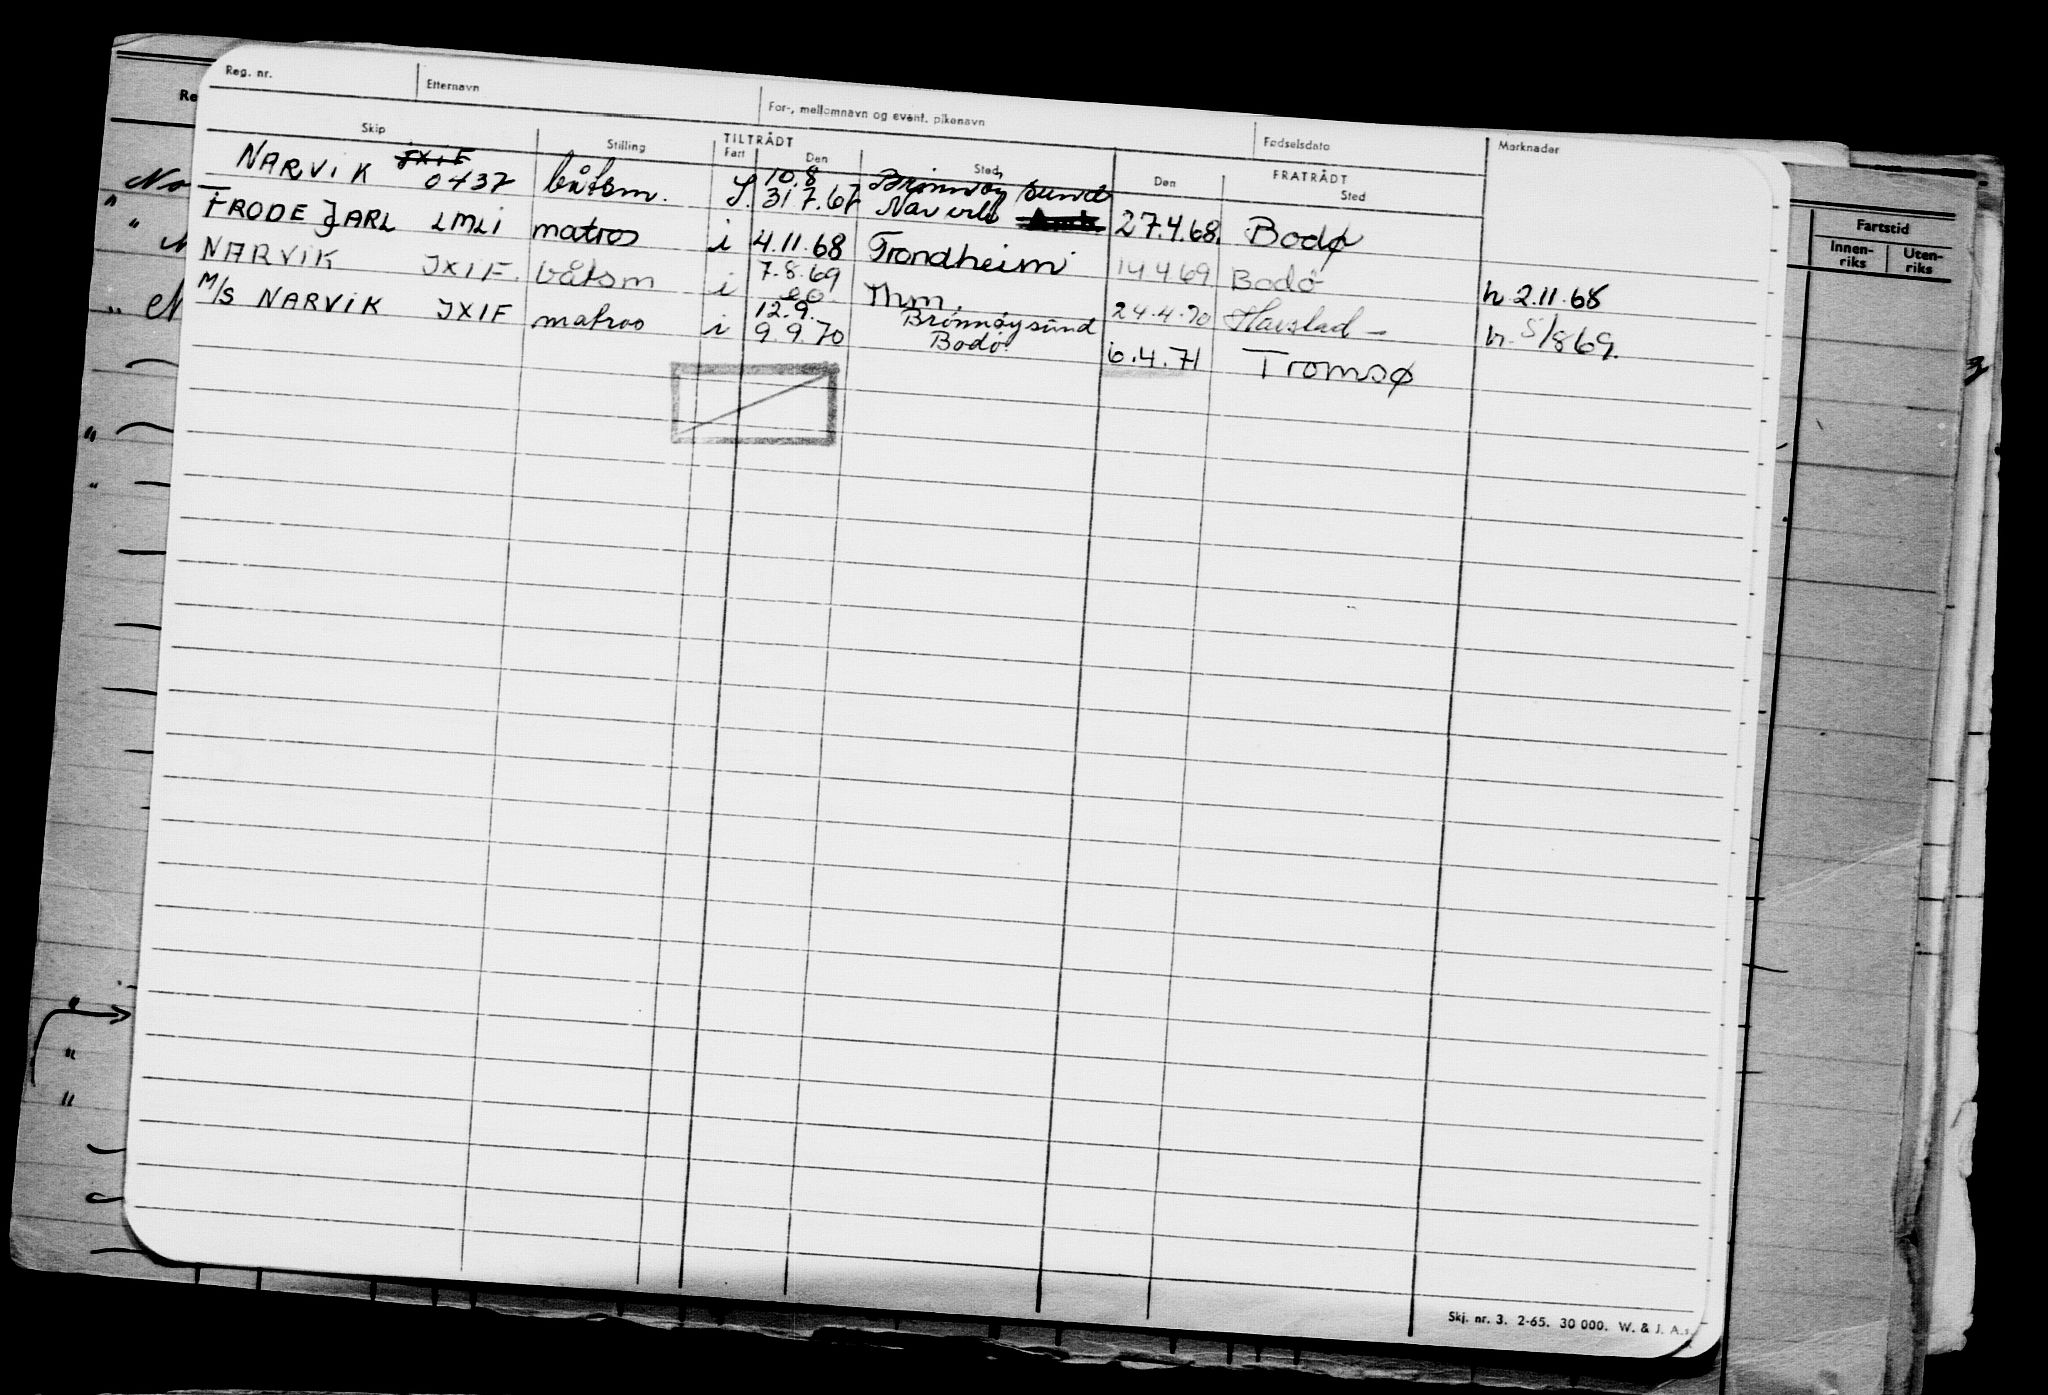 Reg. nr. Etternavn For-, mellomnavn og event. pikenavn Fødselsdato Merknader
Skip Stilling TILTRÅDT FRATRÅDT
Fart Den Sted Den Sted
NARVIK JXIF 10.8 Brønnøysund
0437 båtsm. 31.7.67 Narvik 27.4.68. Bodø
FRODE JARL LMLI matros i 4.11.68 Trondheim 14.4.69 Bodø h. 2.11.68
NARVIK JXIF. båtsm i 7.8.69 Thm. 24.4.70 Harstad - h. 5/8 69.
M/S NARVIK JXIF matros i 12.9. Brønnøysund
9.9.70 Bodø 6.4.71 Tromsø
Fartstid
Innen-
riks Uten-
riks
Skj. nr. 3. 2-65. 30 000. W. & J. A.s.